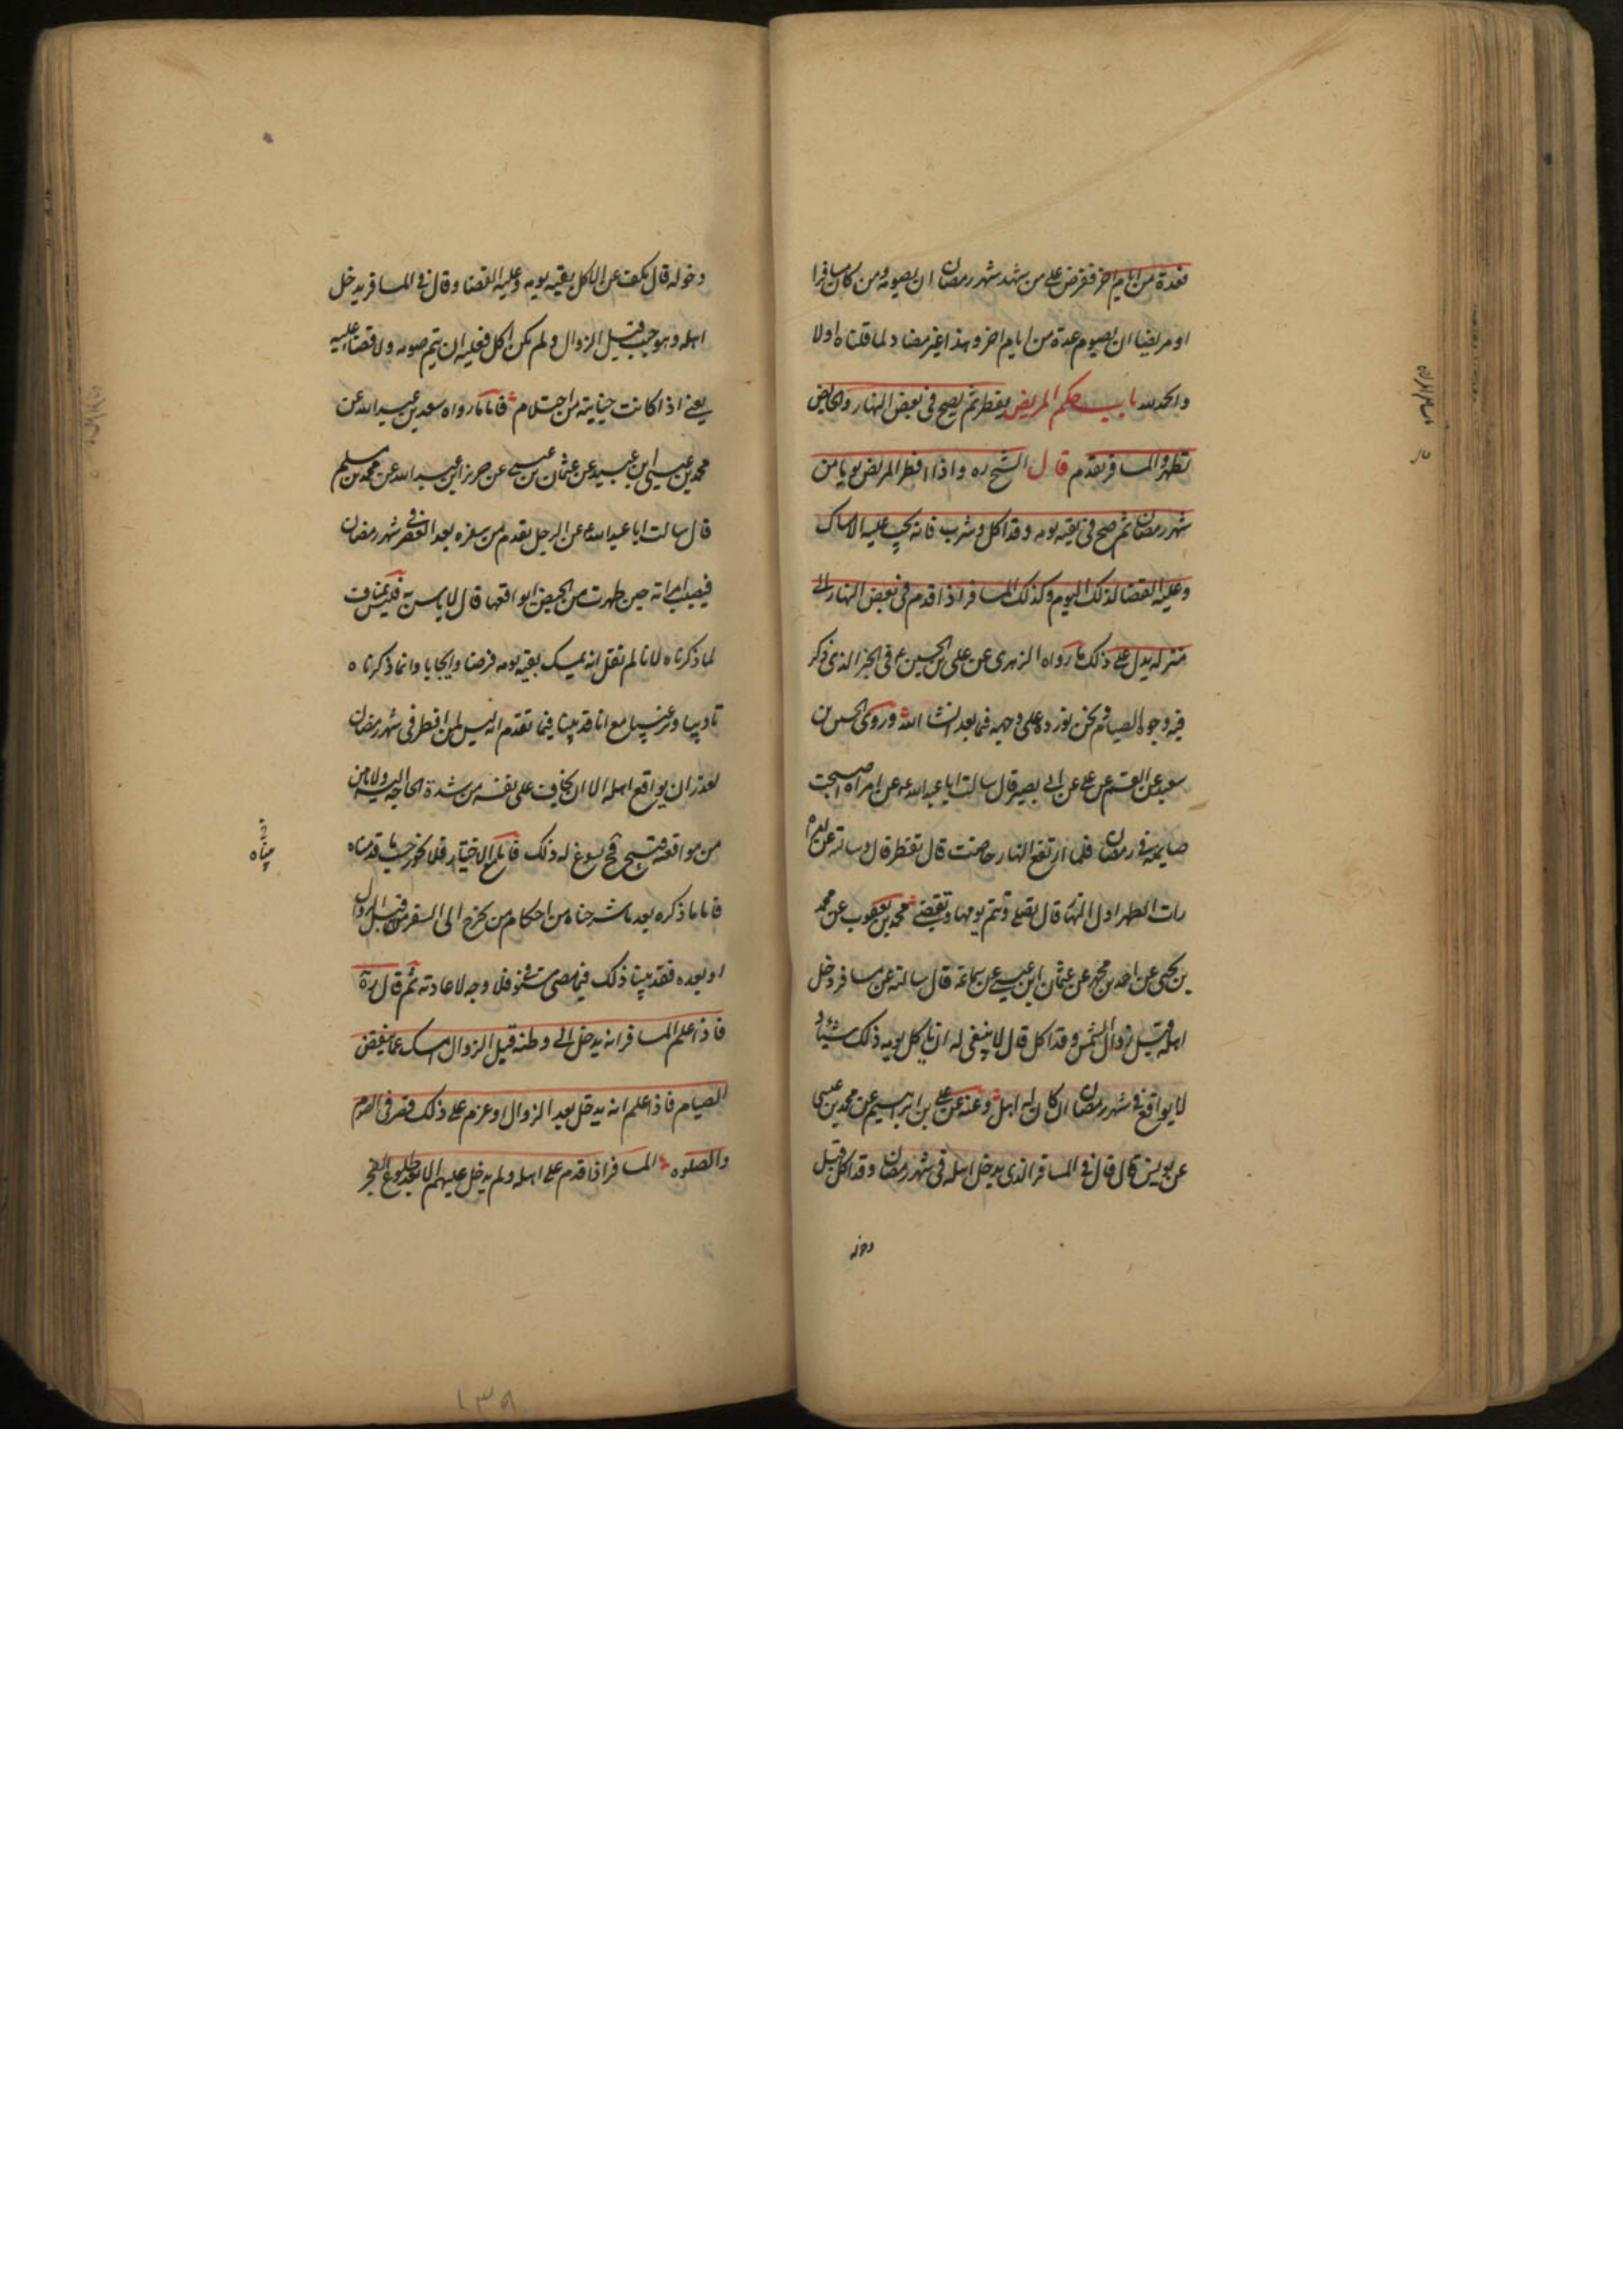 فعدة من ايام اخر ففرض على من شهد شهر رمضان ان يصومه ومن كان مسافرا
او مريضا ان يصوم عدة من ايام اخر وهذا غير مضاد لما قلناه اولا
والحمد لله باب حكم المريض يفطر ثم يصح في بعض النهار والحايض
تطهر والمسافر يقدم قال الشيخ ره واذا افطر المريض يوما من
شهر رمضان ثم صح في بقية يومه وقد اكل وشرب فانه يجب عليه الامساك
وعليه القضا لذلك اليوم وكذلك المسافر اذا قدم في بعض النهار الى
منزله يدل على ذلك ما رواه الزهري عن علي بن الحسين ع في الخبر الذي ذكر
فيه وجوه الصيام ونحن نورده على وجهه فيما بعد انشا الله وروى الحسين بن
سعيد عن القسم عن علي عن ابي بصير قال سالت ابا عبد الله ع عن امراه اصبحت
صايمة في رمضان فلما ارتفع النهار حاضت قال تفطر قال وسالته عن امراه
رات الطهر اول النهار قال تصلي وتتم يومها وتقضي محمد بن يعقوب عن محمد
بن يحيى عن احمد بن محمد عن عثمان ابن عيسى عن سماعة قال سالته عن مسافر دخل
اهله قبل زوال الشمس وقد اكل قال لا ينبغي له ان ياكل يومه ذلك شيئا و
لا يواقع في شهر رمضان ان كان له اهل وعنه عن علي بن ابراهيم عن محمد بن عيسى
عن يونس قال قال في المسافر الذي يدخل اهله في شهر رمضان وقد اكل قبل
دخوله
دخوله قال يكف عن الاكل بقية يومه وعليه القضا وقال في المسافر يدخل
اهله وهو جنب قبل الزوال ولم يكن اكل فعليه ان يتم صومه ولا قضا عليه
يعني اذا كانت جنابته من احتلام فاما ما رواه سعد بن عبد الله عن
محمد بن عيسى ابن عبيد عن عثمان بن عيسى عن حريز ابن عبد الله عن محمد بن مسلم
قال سالت ابا عبد الله ع عن الرجل يقدم من سفره بعد العصر في شهر رمضان
فيصيب امراته حين طهرت من الحيض ايواقعها قال لا باس به فليس بمناف
لما ذكرناه لانا لم نقل انه يمسك بقية يومه فرضا وايجابا وانما ذكرناه
تاديبا وترغيبا مع انا قد بينا فيما تقدم انه ليس لمن افطر في شهر رمضان
لعذر ان يواقع اهله الا ان يخاف على نفسه من شدة الحاجة اليه ولا يامن
من مواقعة قبيح فح يسوغ له ذلك فاما مع الاختيار فلا يجوز حسب ما قدمناه
فاما ما ذكره بعد ما شرحناه من احكام من يخرج الى السفر من قبل الزوال
او بعده فقد بينا ذلك فيما مضى مستوفى فلا وجه لاعادته ثم قال ره
فاذا علم المسافر انه يدخل الى وطنه قبل الزوال امسك عما ينقض
الصيام فاذا علم انه يدخل بعد الزوال او عزم على ذلك قصر في الصوم
والصلوه المسافر اذا قدم على اهله ولم يدخل عليهم الا بعد طلوع الفجر
١٣٩